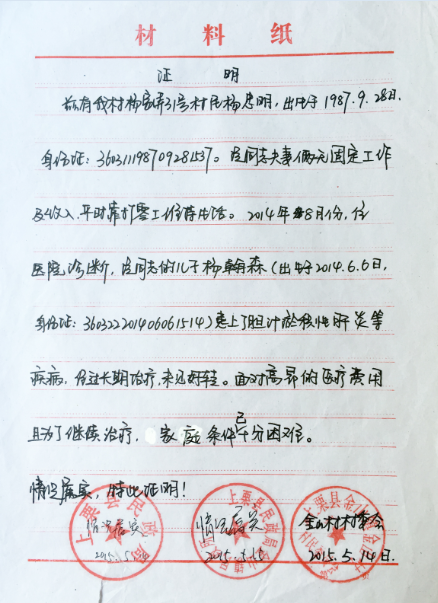 材料纸
证明
兹有我村杨家弄31号村民杨忠明，出生于1987.9.28日.
身份证：360311198709281537。该同志夫妻俩无固定工作
及收入，平时靠打零工维持生活。2014年8月份，经
医院诊断，该同志的儿子杨翰森（出生于2014.6.6日，
身份证：360322201406061514）患上了胆汁淤积性肝炎等
疾病，经过长期治疗，未见好转。面对高昂的医疗费用
且为了继续治疗，家庭条件已十分困难。
情况属实，特此证明！
情况属实 情况属实 金山村村委会
2015.5.15 2015.5.14日.
上栗县民政局